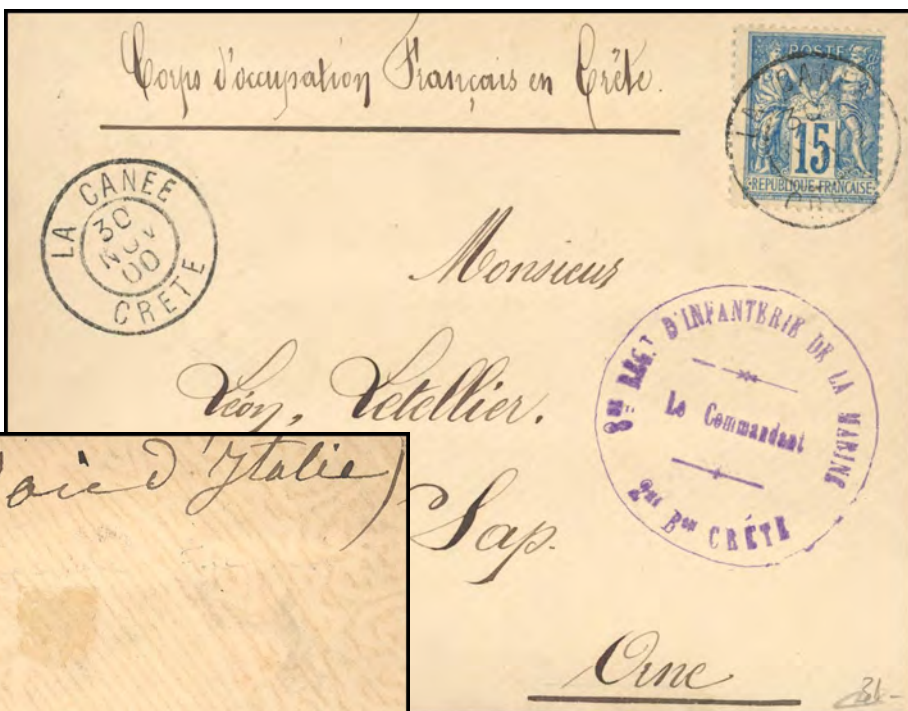 Corps d'occupation Français en Crête.
POSTE
15
REPUBLIQUE FRANÇAISE
LA CANEE
30
NOV
00
CRETE
Monsieur
8ME REGT D'INFANTERIE DE LA MARINE
Le Commandant
2ME BON CRÉTE
Léon, Letellier.
d'Italie)
Sap.
Orne